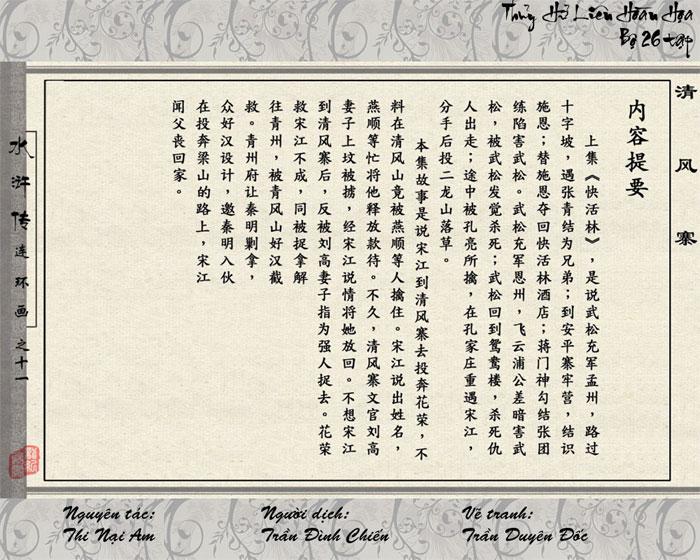 Thủy Hử Liên Hoàn Họa
Bộ 26 tập
清风寨
内容提要
上集《快活林》，是说武松充军孟州，路过
十字坡，遇张青结为兄弟；到安平寨牢营，结识
施恩；替施恩夺回快活林酒店；蒋门神勾结张团
练陷害武松。武松充军恩州，飞云浦公差暗害武
松，被武松发觉杀死；武松回到鸳鸯楼，杀死仇
人出走；途中被孔亮所擒，在孔家庄重遇宋江，
分手后投二龙山落草。
本集故事是说宋江到清风寨去投奔花荣，不
料在清风山竟被燕顺等人擒住。宋江说出姓名，
燕顺等忙将他释放款待。不久，清风寨文官刘高
妻子上坟被掳，经宋江说情将她放回。不想宋江
到清风寨后，反被刘高妻子指为强人捉去。花荣
救宋江不成，同被捉拿解
往青州，被青风山好汉截
救。青州府让秦明剿拿，
众好汉设计，邀秦明入伙
在投奔梁山的路上，宋江
闻父丧回家。
水浒传连环画之十一
Nguyên tác:
Thi Nại Am
Người dịch:
Trần Đình Chiến
Vẽ tranh:
Trần Duyên Đốc